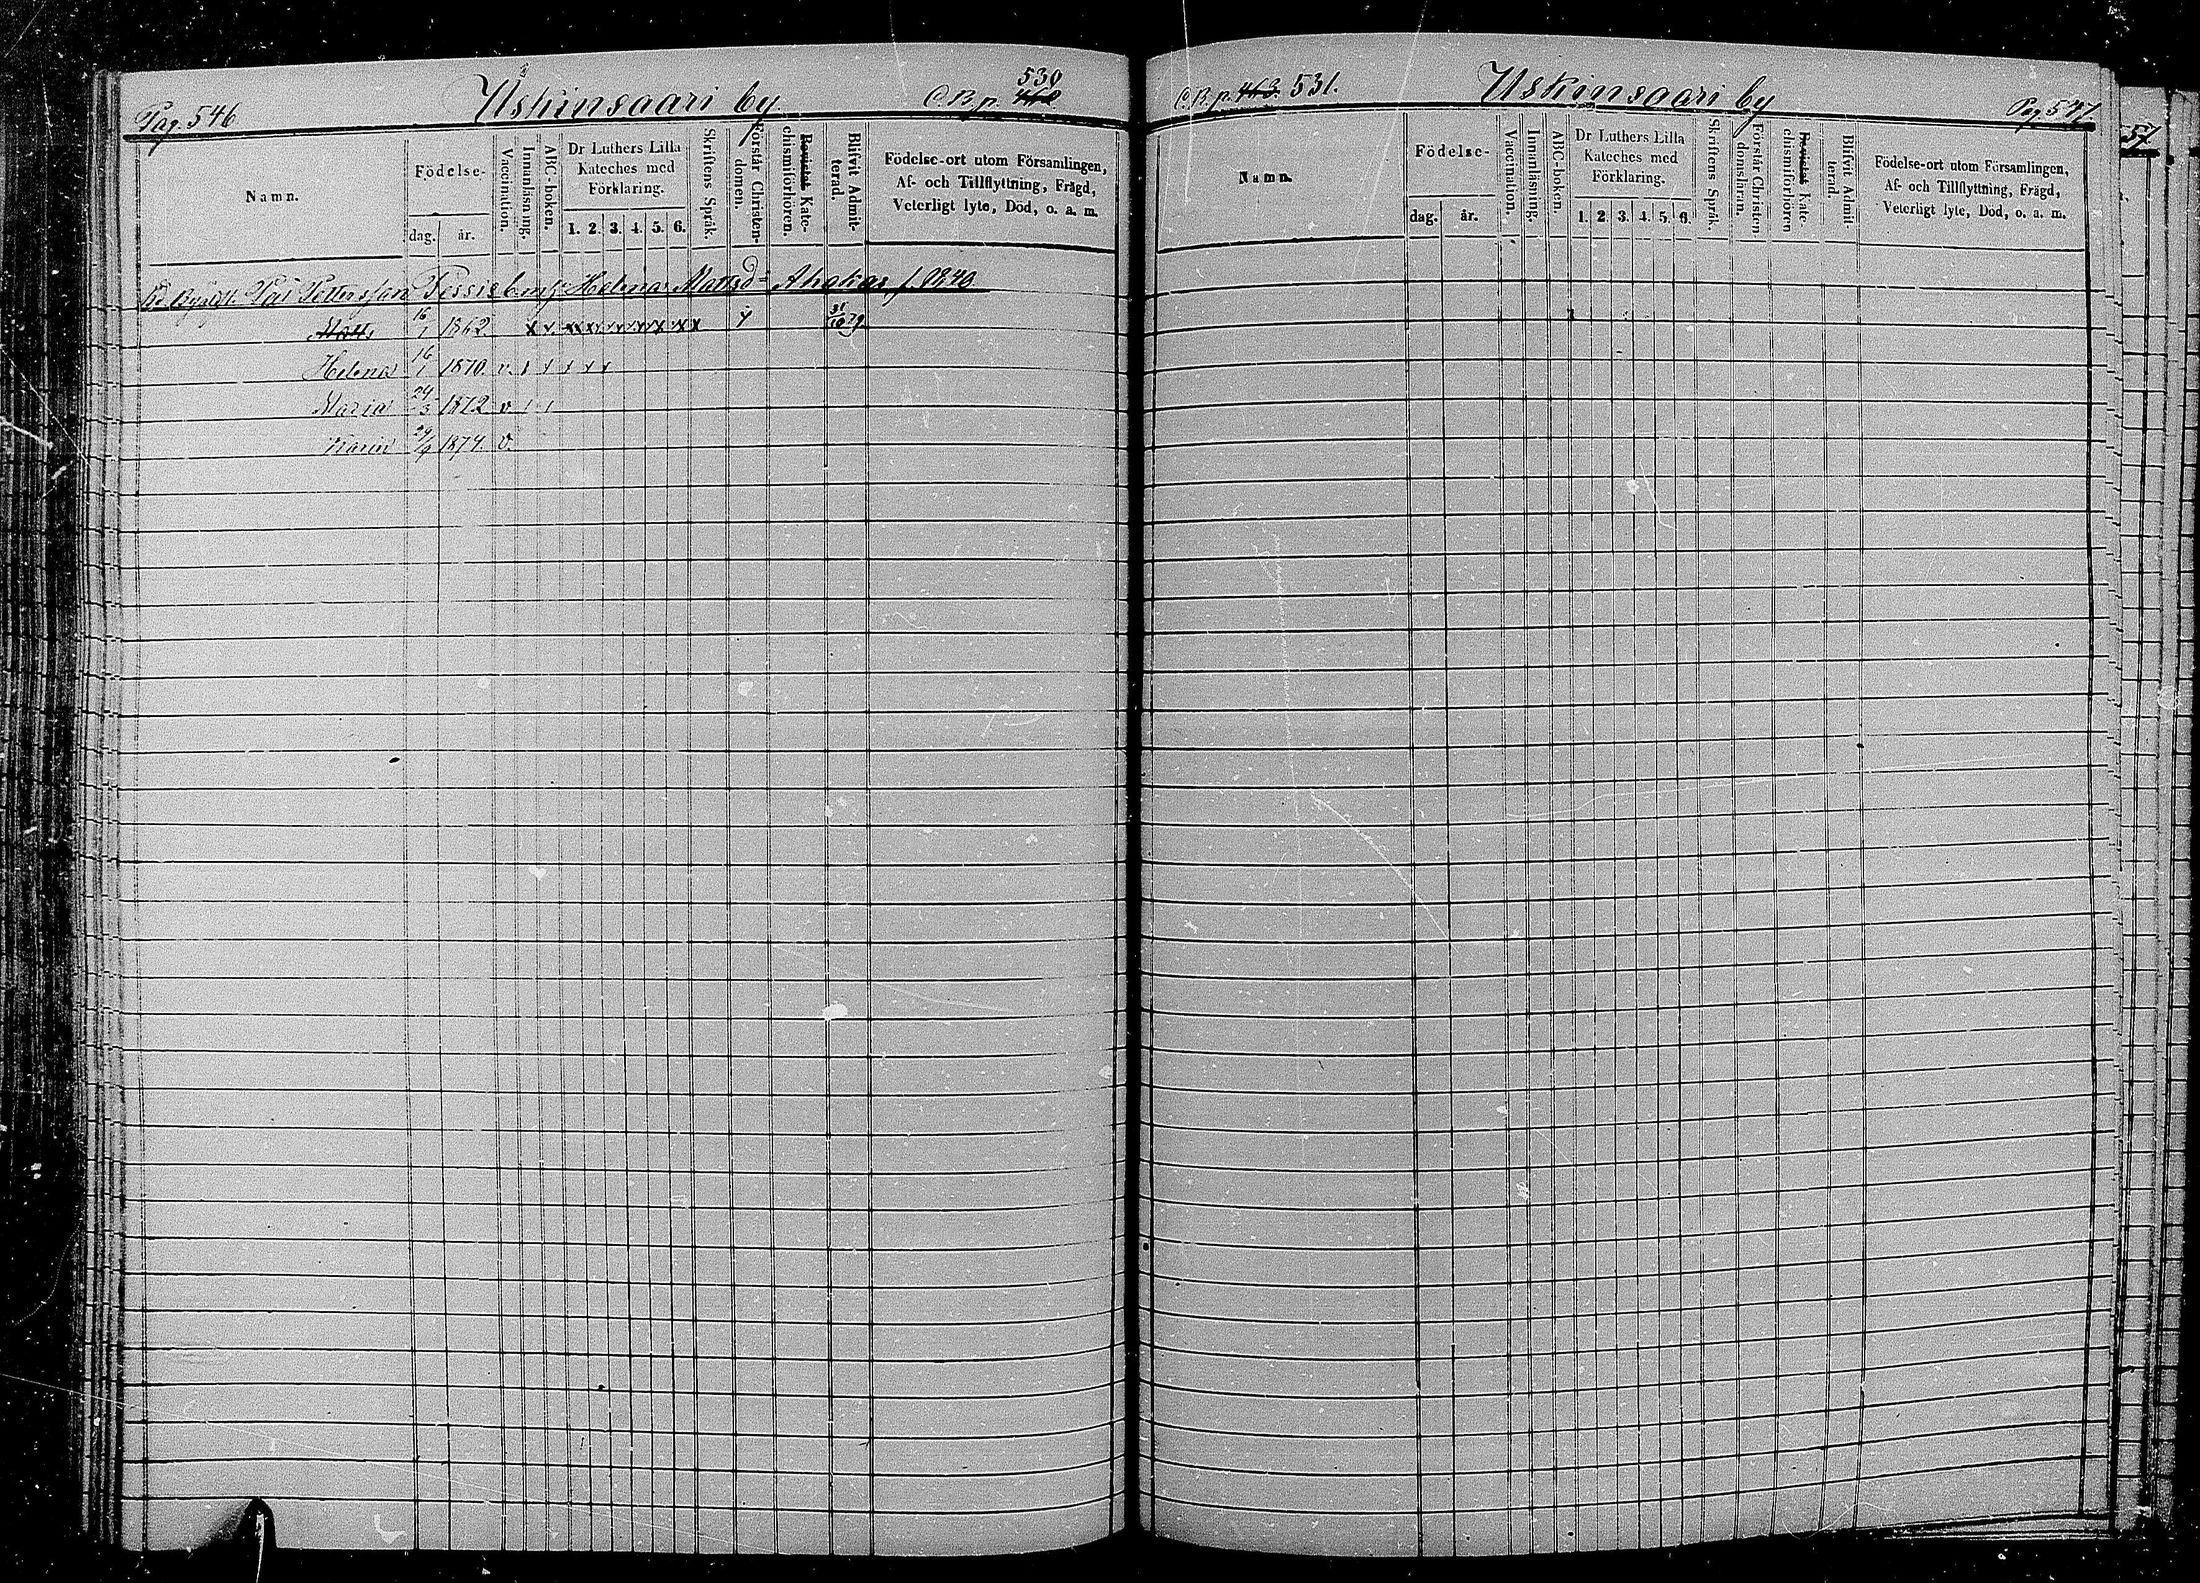 Pag. 546 Uskinsaari by C.B.p. 460 530
Namn.
Födelse-
dag. år.
Vaccination.
Innanläsning.
ABC-boken.
Dr Luthers Lilla
Kateches med
Förklaring.
1. 2. 3. 4. 5. 6.
Skriftens Språk.
Förstår Christen-
domen.
Bevistat Kate-
chismiförhören.
Blifvit Admit-
terad.
Födelse-ort utom Församlingen,
Af- och Tillflyttning, Frägd,
Veterligt lyte, Död, o. a. m.
Pål Pettersson Helena Mattsd. Ahokas f. 1840
Matts 16/1 1862 x x x x x x x x x x 31/10 79
Helena 16/1 1870. v. x x x x x
Maria 24/3 1872 v
Karin 29/9 1874. v.
C.B.p. 463. 531. Uskinsaari by Pag. 547.
Namn.
Födelse-
dag. år.
Vaccination.
Innanläsning.
ABC-boken.
Dr Luthers Lilla
Kateches med
Förklaring.
1. 2. 3. 4. 5. 6.
Skriftens Språk.
Förstår Christen
domsläran.
Bevistat Kate-
chismiförhören
Blifvit Admit-
terad.
Födelse-ort utom Församlingen,
Af- och Tillflyttning, Frägd,
Veterligt lyte, Död, o. a. m.